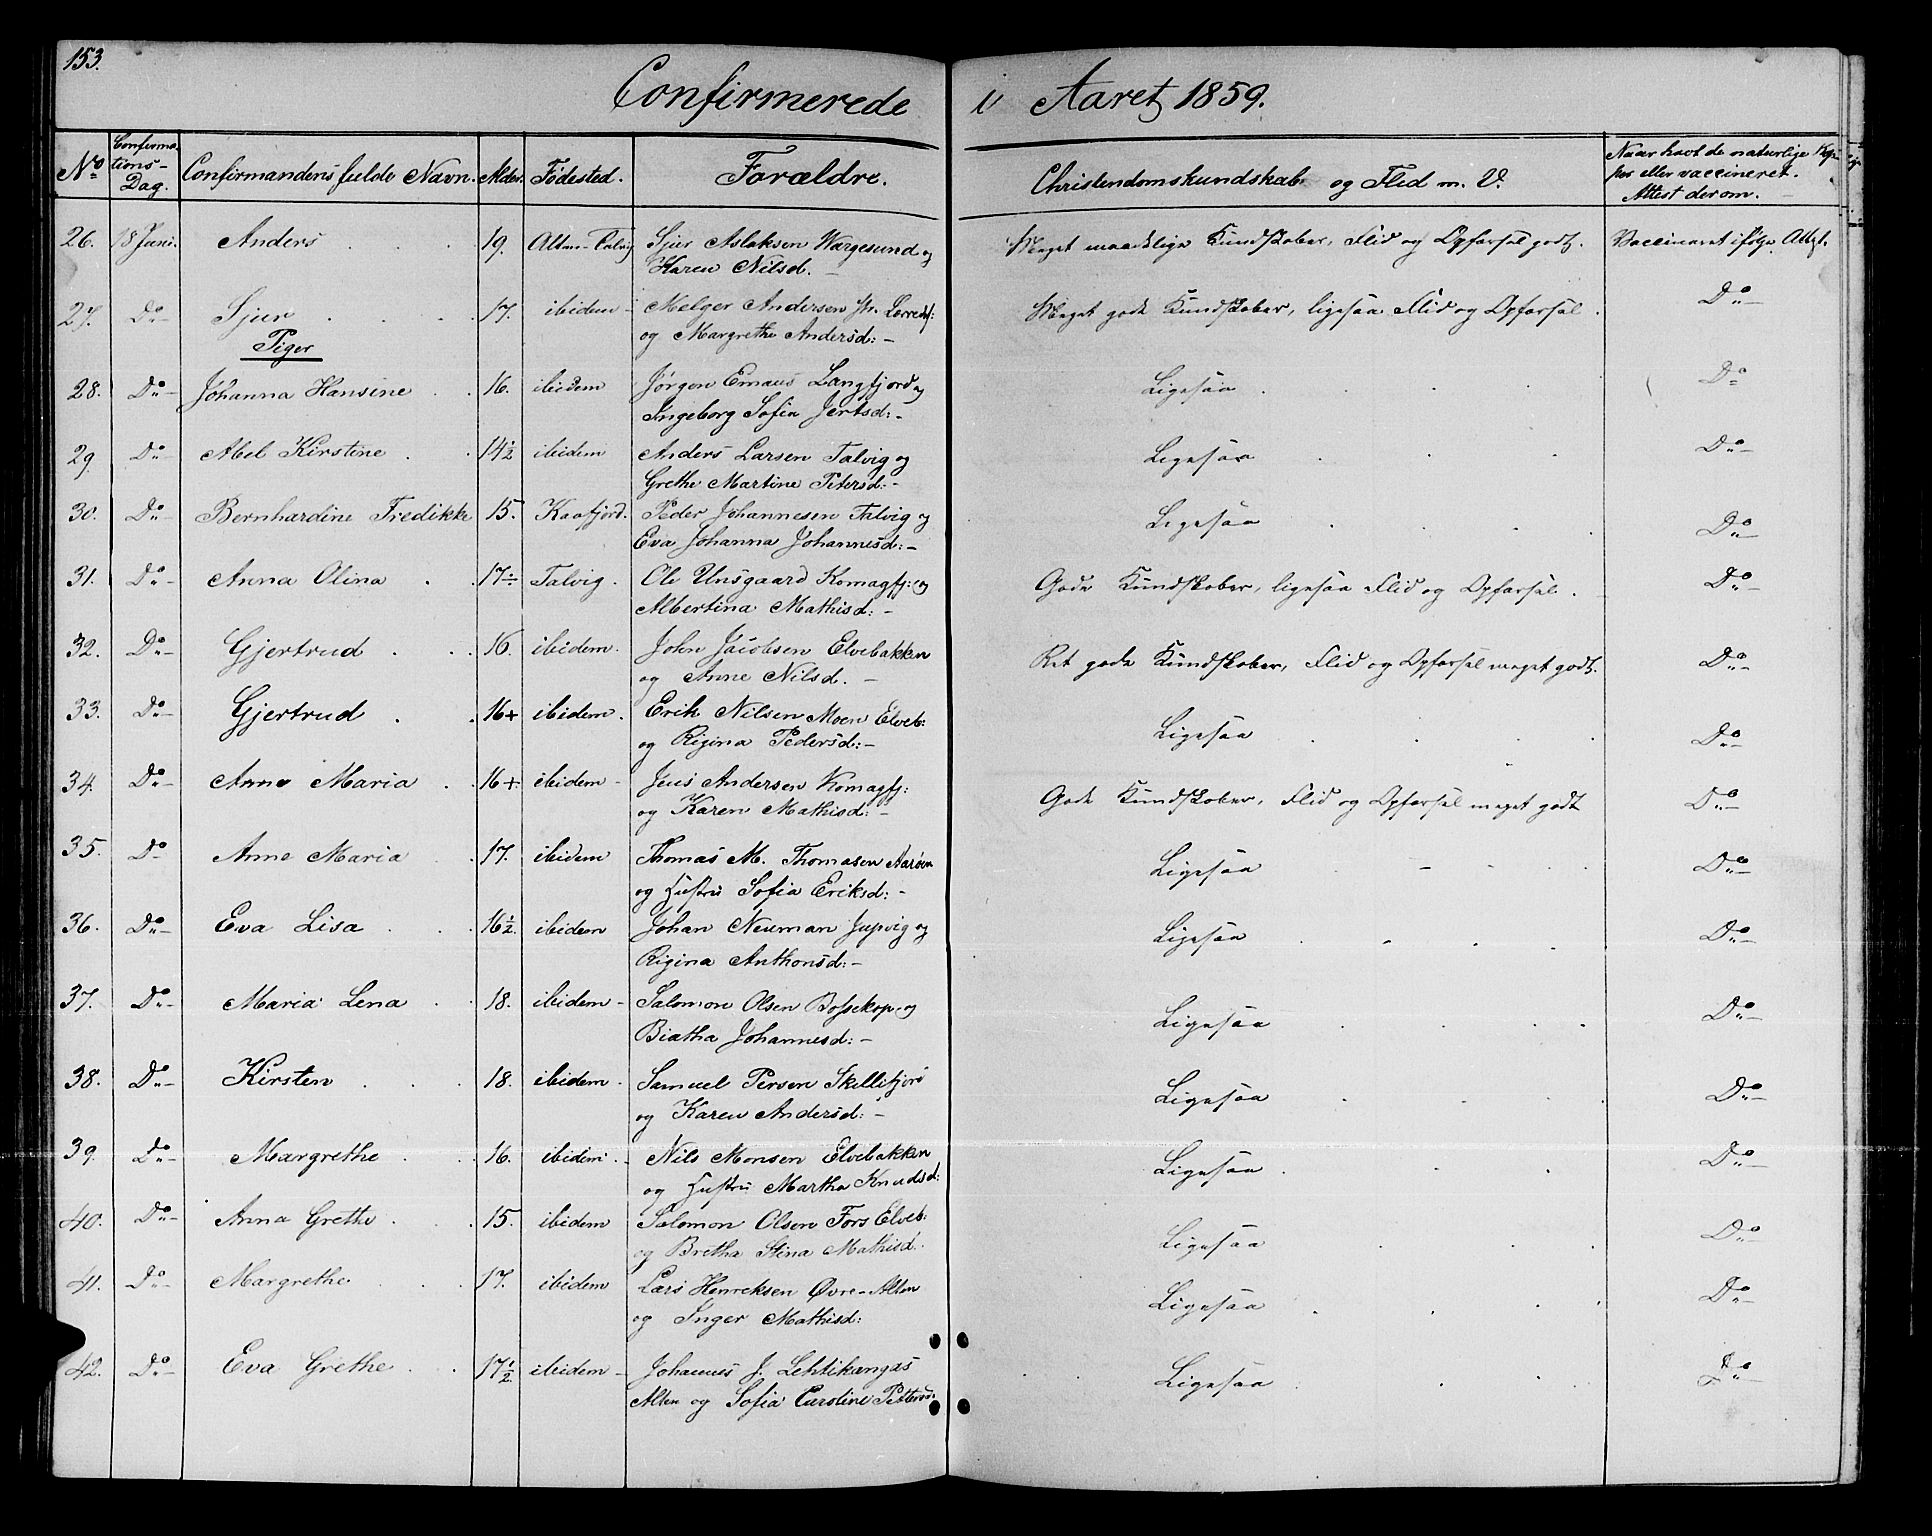 153.
Confirmerede i Aaret 1859.
No Confirmations-Dag. Confirmandens fulde Navn. Alder. Fødested. Forældre. Christendomskundskab og Flid m. V. Naar havt de naturlige Kopper eller vaccineret. Attest derom.
26. 18 Juni. Anders 19. Alten-Talvig Sjur Aslaksen Wargesund og Meget maadelige Kundskaber, Flid og Opførsel godt. Vaccineret ifølge Attest.
Karen Nilsd.
27. Do Sjur 17. ibidem Melger Andersen og Margrethe Andersd: Meget gode Kundskaber, ligesaa Flid og Opførsel. Do
Piger
28. Do Johanna Hansine 16. ibidem Jørgen Emaus Langfjord og Ligesaa Do
Ingeborg Sofia
29 Do Abel Kirstine 14½ ibidem Anders Larsen Talvig og Ligesaa Do
Grethe Martine Petersd:
30. Do Bernhardine Fredikke 15. Kaafjord. Peder Johannesen Talvig og Ligesaa Do
Eva Johanna Johannesd:
31. Do Anna Olina 17÷ Talvig. Ole Unsgaard Komagfj: og Gode Kundskaber, ligesaa Flid og Opførsel. Do
Albertina Mathisd:
32. Do Gjertrud 16. ibidem. John Jacobsen Elvebakken Ret gode Kundskaber, Flid og Opførsel meget godt. Do
og Anne Nilsd.
33. Do Gjertrud 16+ ibidem. Erik Nilsen Moen Elveb: Ligesaa Do
og Rigina Pedersd:
34. Do Anne Maria 16+ ibidem Jens Andersen Komagfj: Gode Kundskaber, Flid og Opførsel meget godt Do
og Karen Mathisd:
35. Do Anne Maria 17. ibidem Thomas M. Thomasen Aarøen Ligesaa Do
og Hustru Sofia Eriksd:
36. Do Eva Lisa 16½ ibidem Johan Neuman Jupvig og Ligesaa Do
Rigina Anthonsd:
37. Do Maria Lena 18. ibidem Salomon Olsen Bossekop og Ligesaa Do
Biatha Johannesd:
38. Do Kirsten 18. ibidem Samuel Persen Skillefjord Ligesaa Do
og Karen Andersd:
39. Do Margrethe 16. ibidem Nils Monsen Elvebakken Ligesaa Do
og Hustru Martha Knudsd:
40. Do Anna Grethe 15. ibidem Salomon Olsen Fors Elveb: Ligesaa Do
og Bretha Stina Mathisd:
41. Do Margrethe 17. ibidem Lars Henreksen Øvre-Alten Ligesaa Do
og Inger Mathisd:
42. Do Eva Grethe 17½ ibidem Johannes J. Lehtikangas Ligesaa Do
Alten og Sofia Caroline Pettersd: